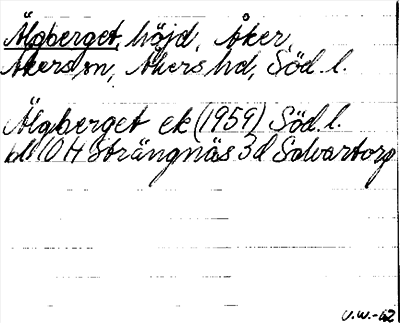 Älgberget, höjd, Åker,
Åkers sn, Åkers hd, Söd. l.
Älgberget ek (1959) Söd. l.
bl 10 H Strängnäs 3d Solvartorp
U.W.-62